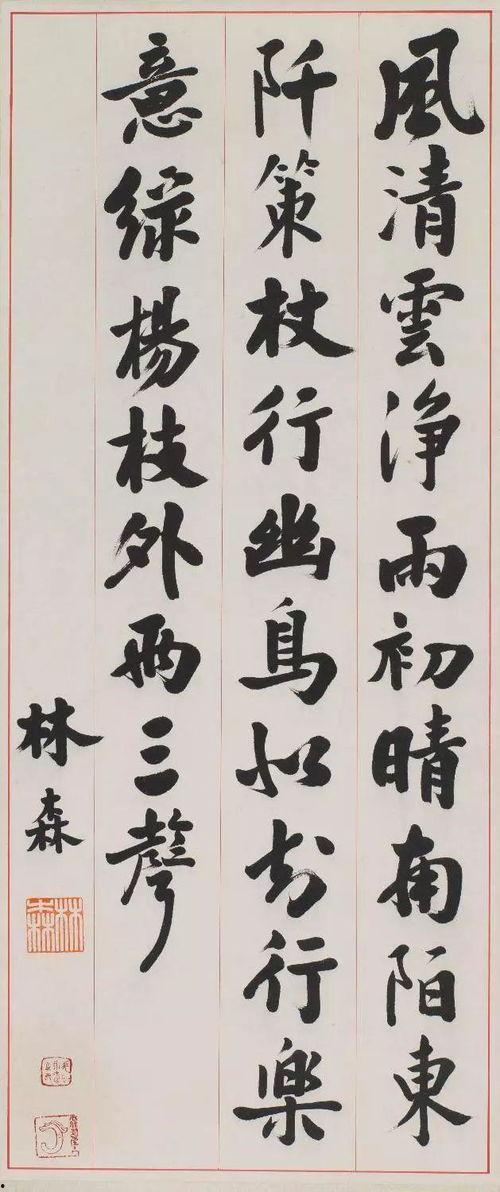 風清雲浄雨初晴南陌東
阡策杖行幽鳥似知行樂
意綠楊枝外兩三聲
林森
林森